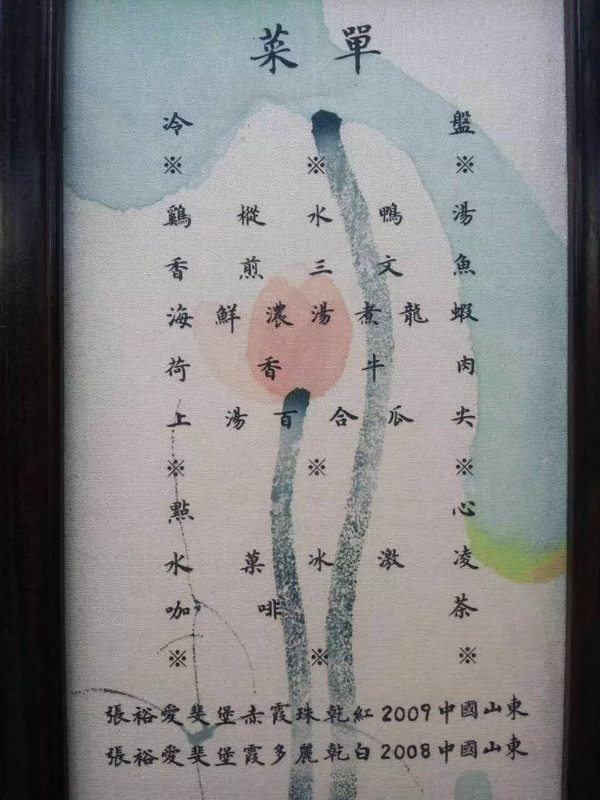 菜單
冷盤
※※※
鷄樅水鴨湯
香煎三文魚
海鮮濃湯煮龍蝦
荷香牛肉
上湯百合瓜尖
※※※
點心
水菓冰激凌
咖啡 茶
※※※
張裕愛斐堡赤霞珠乾紅2009中國山東
張裕愛斐堡霞多麗乾白2008中國山東